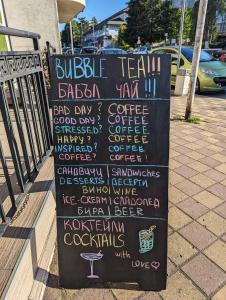 BUBBLE TEA!!!
БАБЪЛ ЧАЙ !!!
BAD DAY? COFFEE
GOOD DAY? COFFEE
STRESSED? COFFEE
HAPPY? COFFEE
INSPIRED? COFFEE
COFFEE? COFFEE
САНДВИЧИ | SANDWICHES
DESSERTS | ДЕСЕРТИ
ВИНО | WINE
ICE-CREAM | СЛАДОЛЕД
БИРА | BEER
КОКТЕЙЛИ
COCKTAILS
with
LOVE